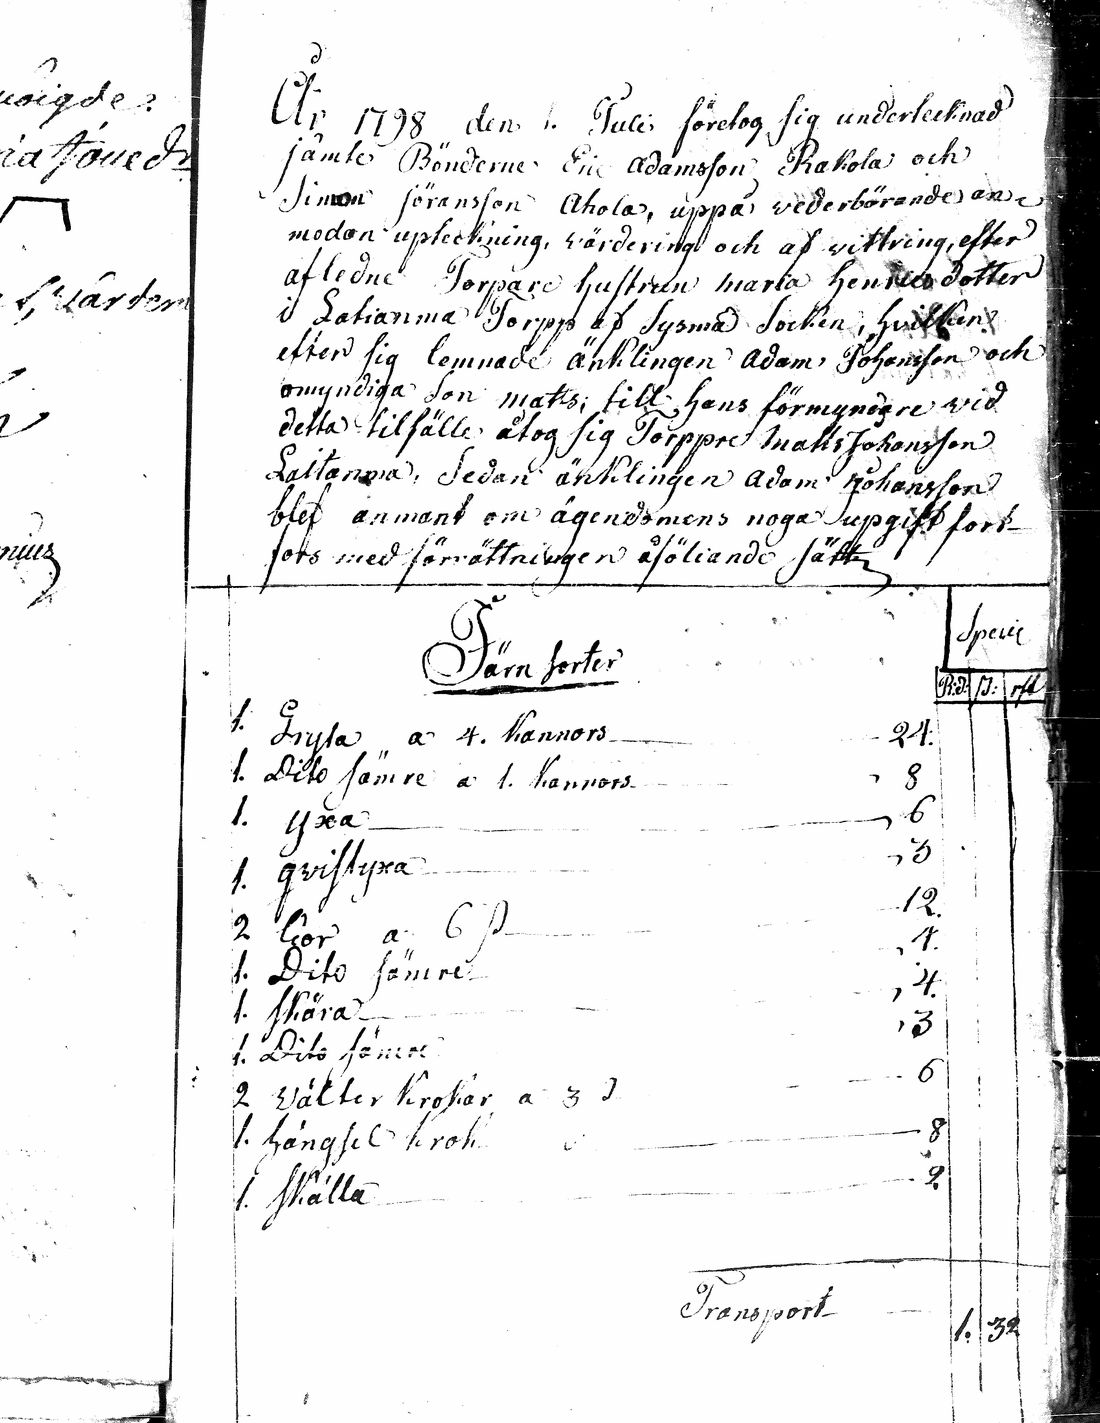 År 1798 den 1. Juli företog sig undertecknad
jämte Bönderne Eric Adamsson Rakola och
Simon Jöransson Ahola, uppå vederbörande an=
modan uptekning, värdering och af vittring, efter
afledne Torpare hustrun Maria Henricsdotter
i Laitanma Torpp af Sysmä Socken, hvilken
efter sig lemnade änklingen Adam Johansson och
omyndiga Son Matts; till hans förmyndare vid
detta tilfälle åtog sig Torppre Matts Johansson
Laitanma, Sedan änklingen Adam Johansson
blef anmant om ägendomens noga upgift fort-
fors med förrättningen åföliande sätt
Specie
Järn sorter
R:d: ß: rst
1. Gryta a 4. kannors 24.
1. Dito sämre a 1. kannors 8
1. yxa 6
1. qvistyxa 3
2 Liar a 6 ß 12.
1. Dito sämre 4.
1. skära 4.
1. Dito sämre 3
2 välter krokar a 3 ß 6
1. hängsel krok 8
1. skälla 2.
Transport 1. 32